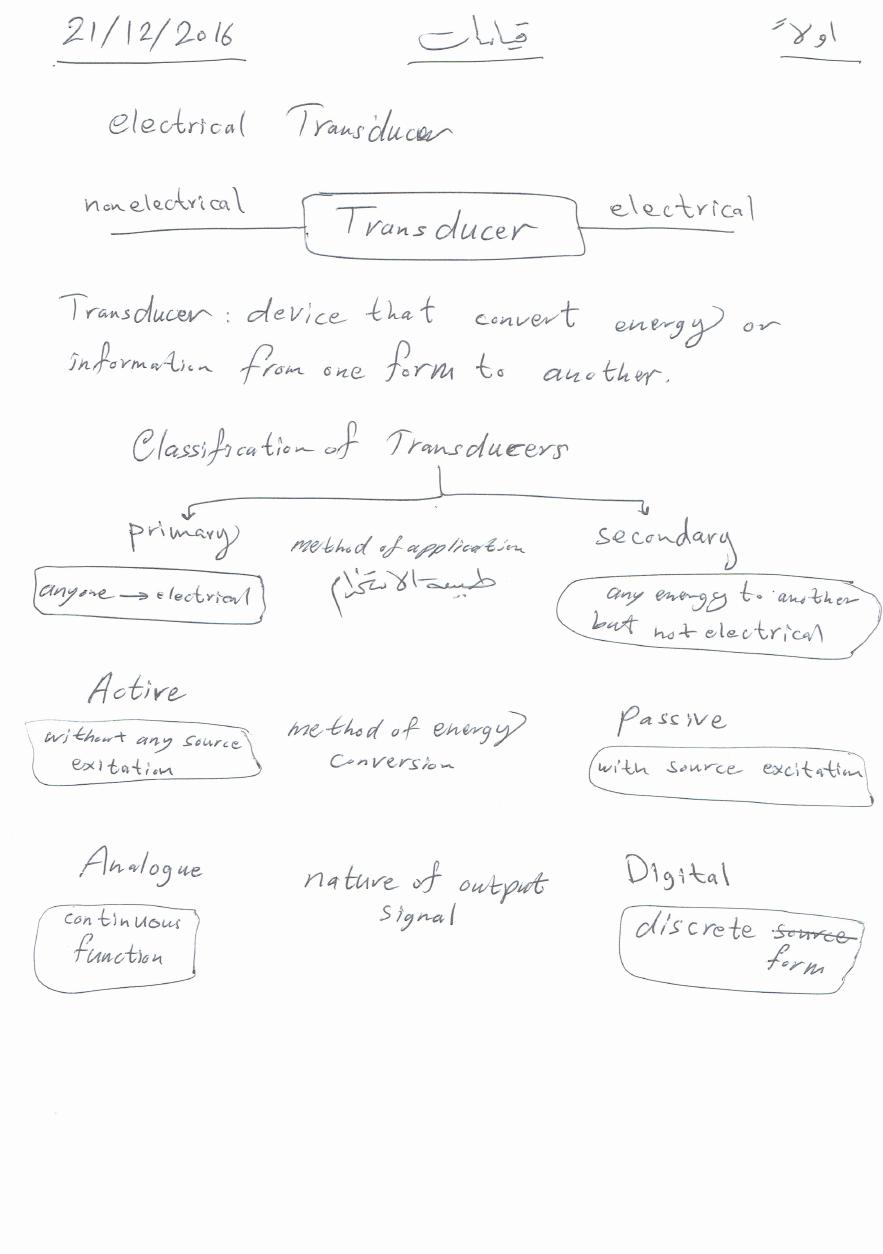 21/12/2016 قياسات اولاً
electrical Transducer
nonelectrical Transducer electrical
Transducer : device that convert energy or
information from one form to another.
Classification of Transducers
primary method of application secondary
anyone → electrical طبيعة الاستخدام any energy to another
but not electrical
Active method of energy Passive
without any source conversion with source excitation
exitation
Analogue nature of output Digital
continuous signal discrete source
function form